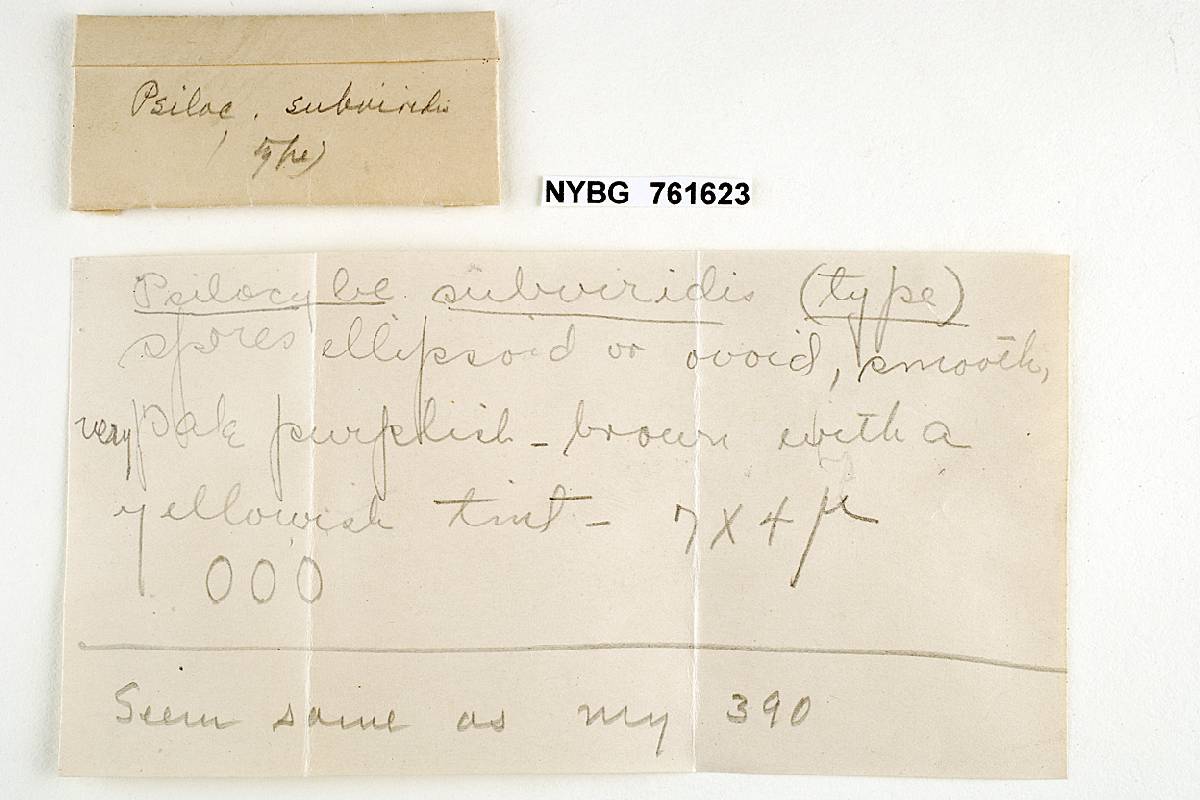 Psiloc. subviridis
(type)
NYBG 761623
Psilocybe subviridis (type)
spores ellipsoid or ovoid, smooth,
very pale purplish-brown with a
yellowish tint - 7 X 4 µ
000
Seem same as my 390